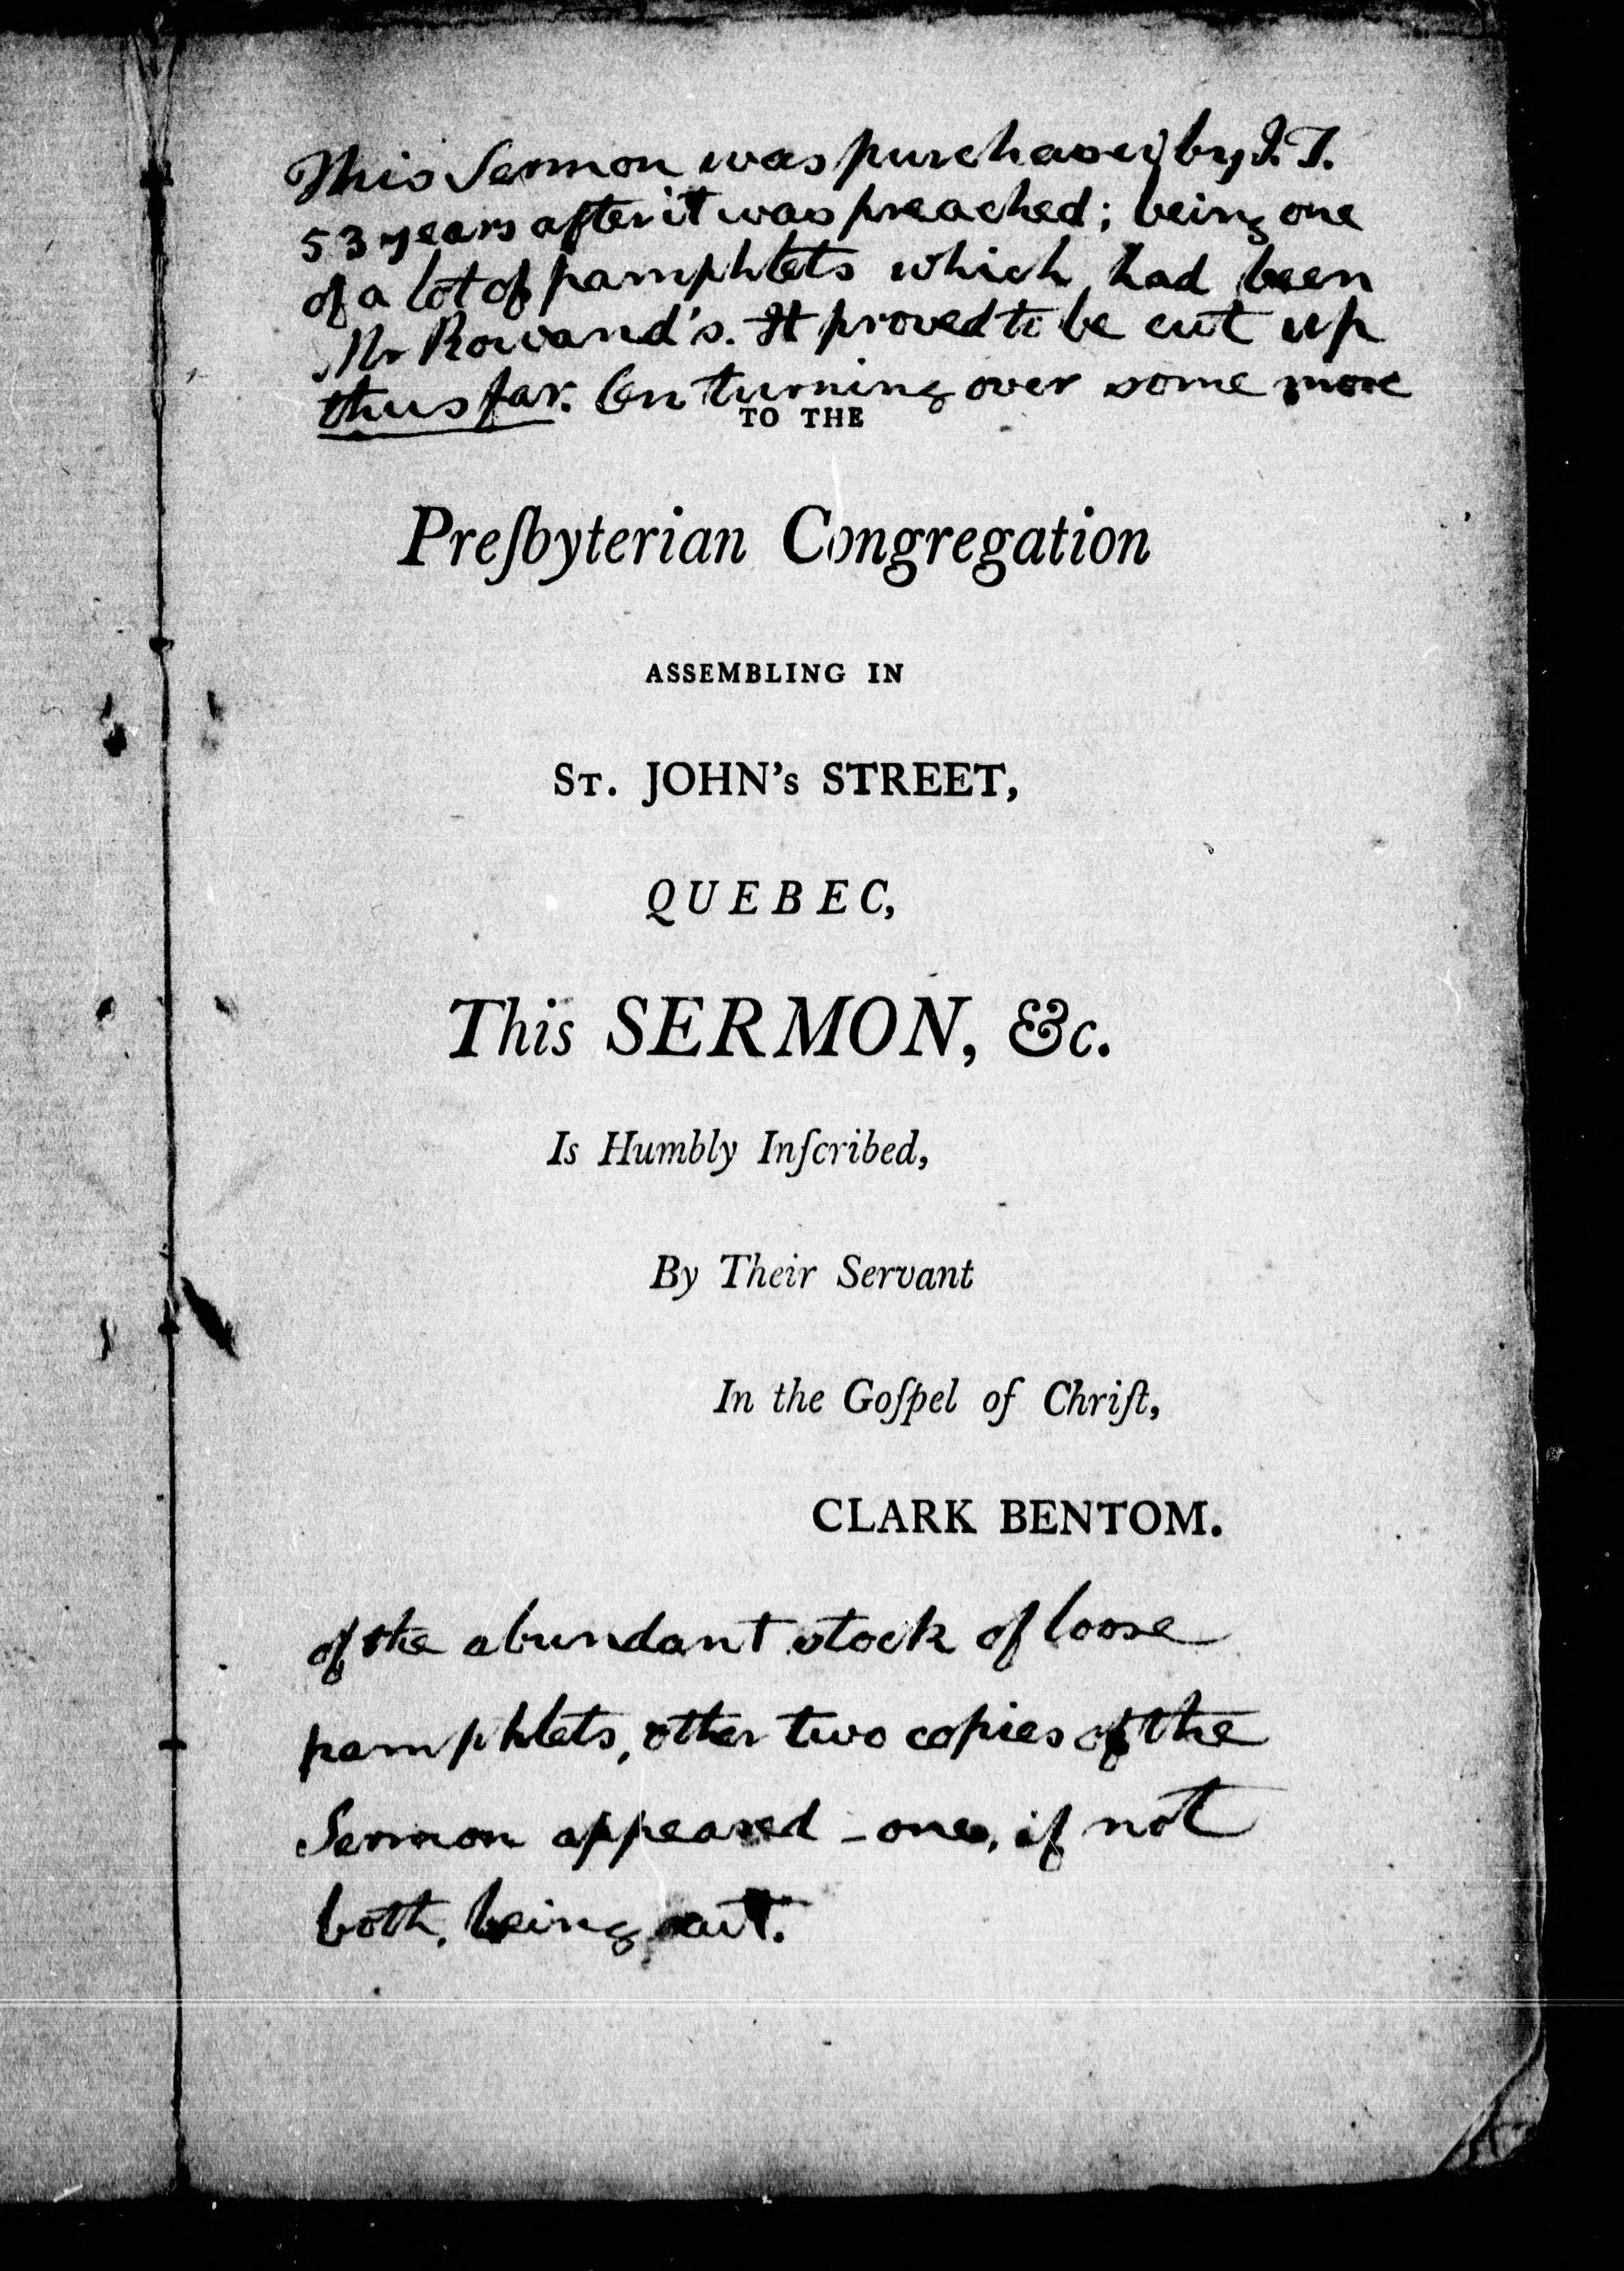 This Sermon was purchased by J. T.
53 years after it was preached; being one
of a lot of pamphlets which had been
Mr Rowand's. It proved to be cut up
thus far. On turning over some more
TO THE
Preſbyterian Congregation
ASSEMBLING IN
ST. JOHN's STREET,
QUEBEC,
This SERMON, &c.
Is Humbly Inſcribed,
By Their Servant
In the Goſpel of Chriſt,
CLARK BENTOM.
of the abundant stock of loose
pamphlets, other two copies of the
Sermon appeared - one, if not
both, being cut.